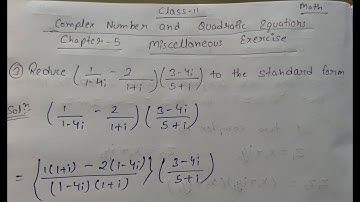 Class-11 Math
Complex Number and Quadratic Equations
Chapter-5 Miscellaneous Exercise
③ Reduce (1/1-4i - 2/1+i)(3-4i/5+i) to the standard form
Solⁿ (1/1-4i - 2/1+i)(3-4i/5+i)
= [1(1+i) - 2(1-4i)/(1-4i)(1+i)](3-4i/5+i)